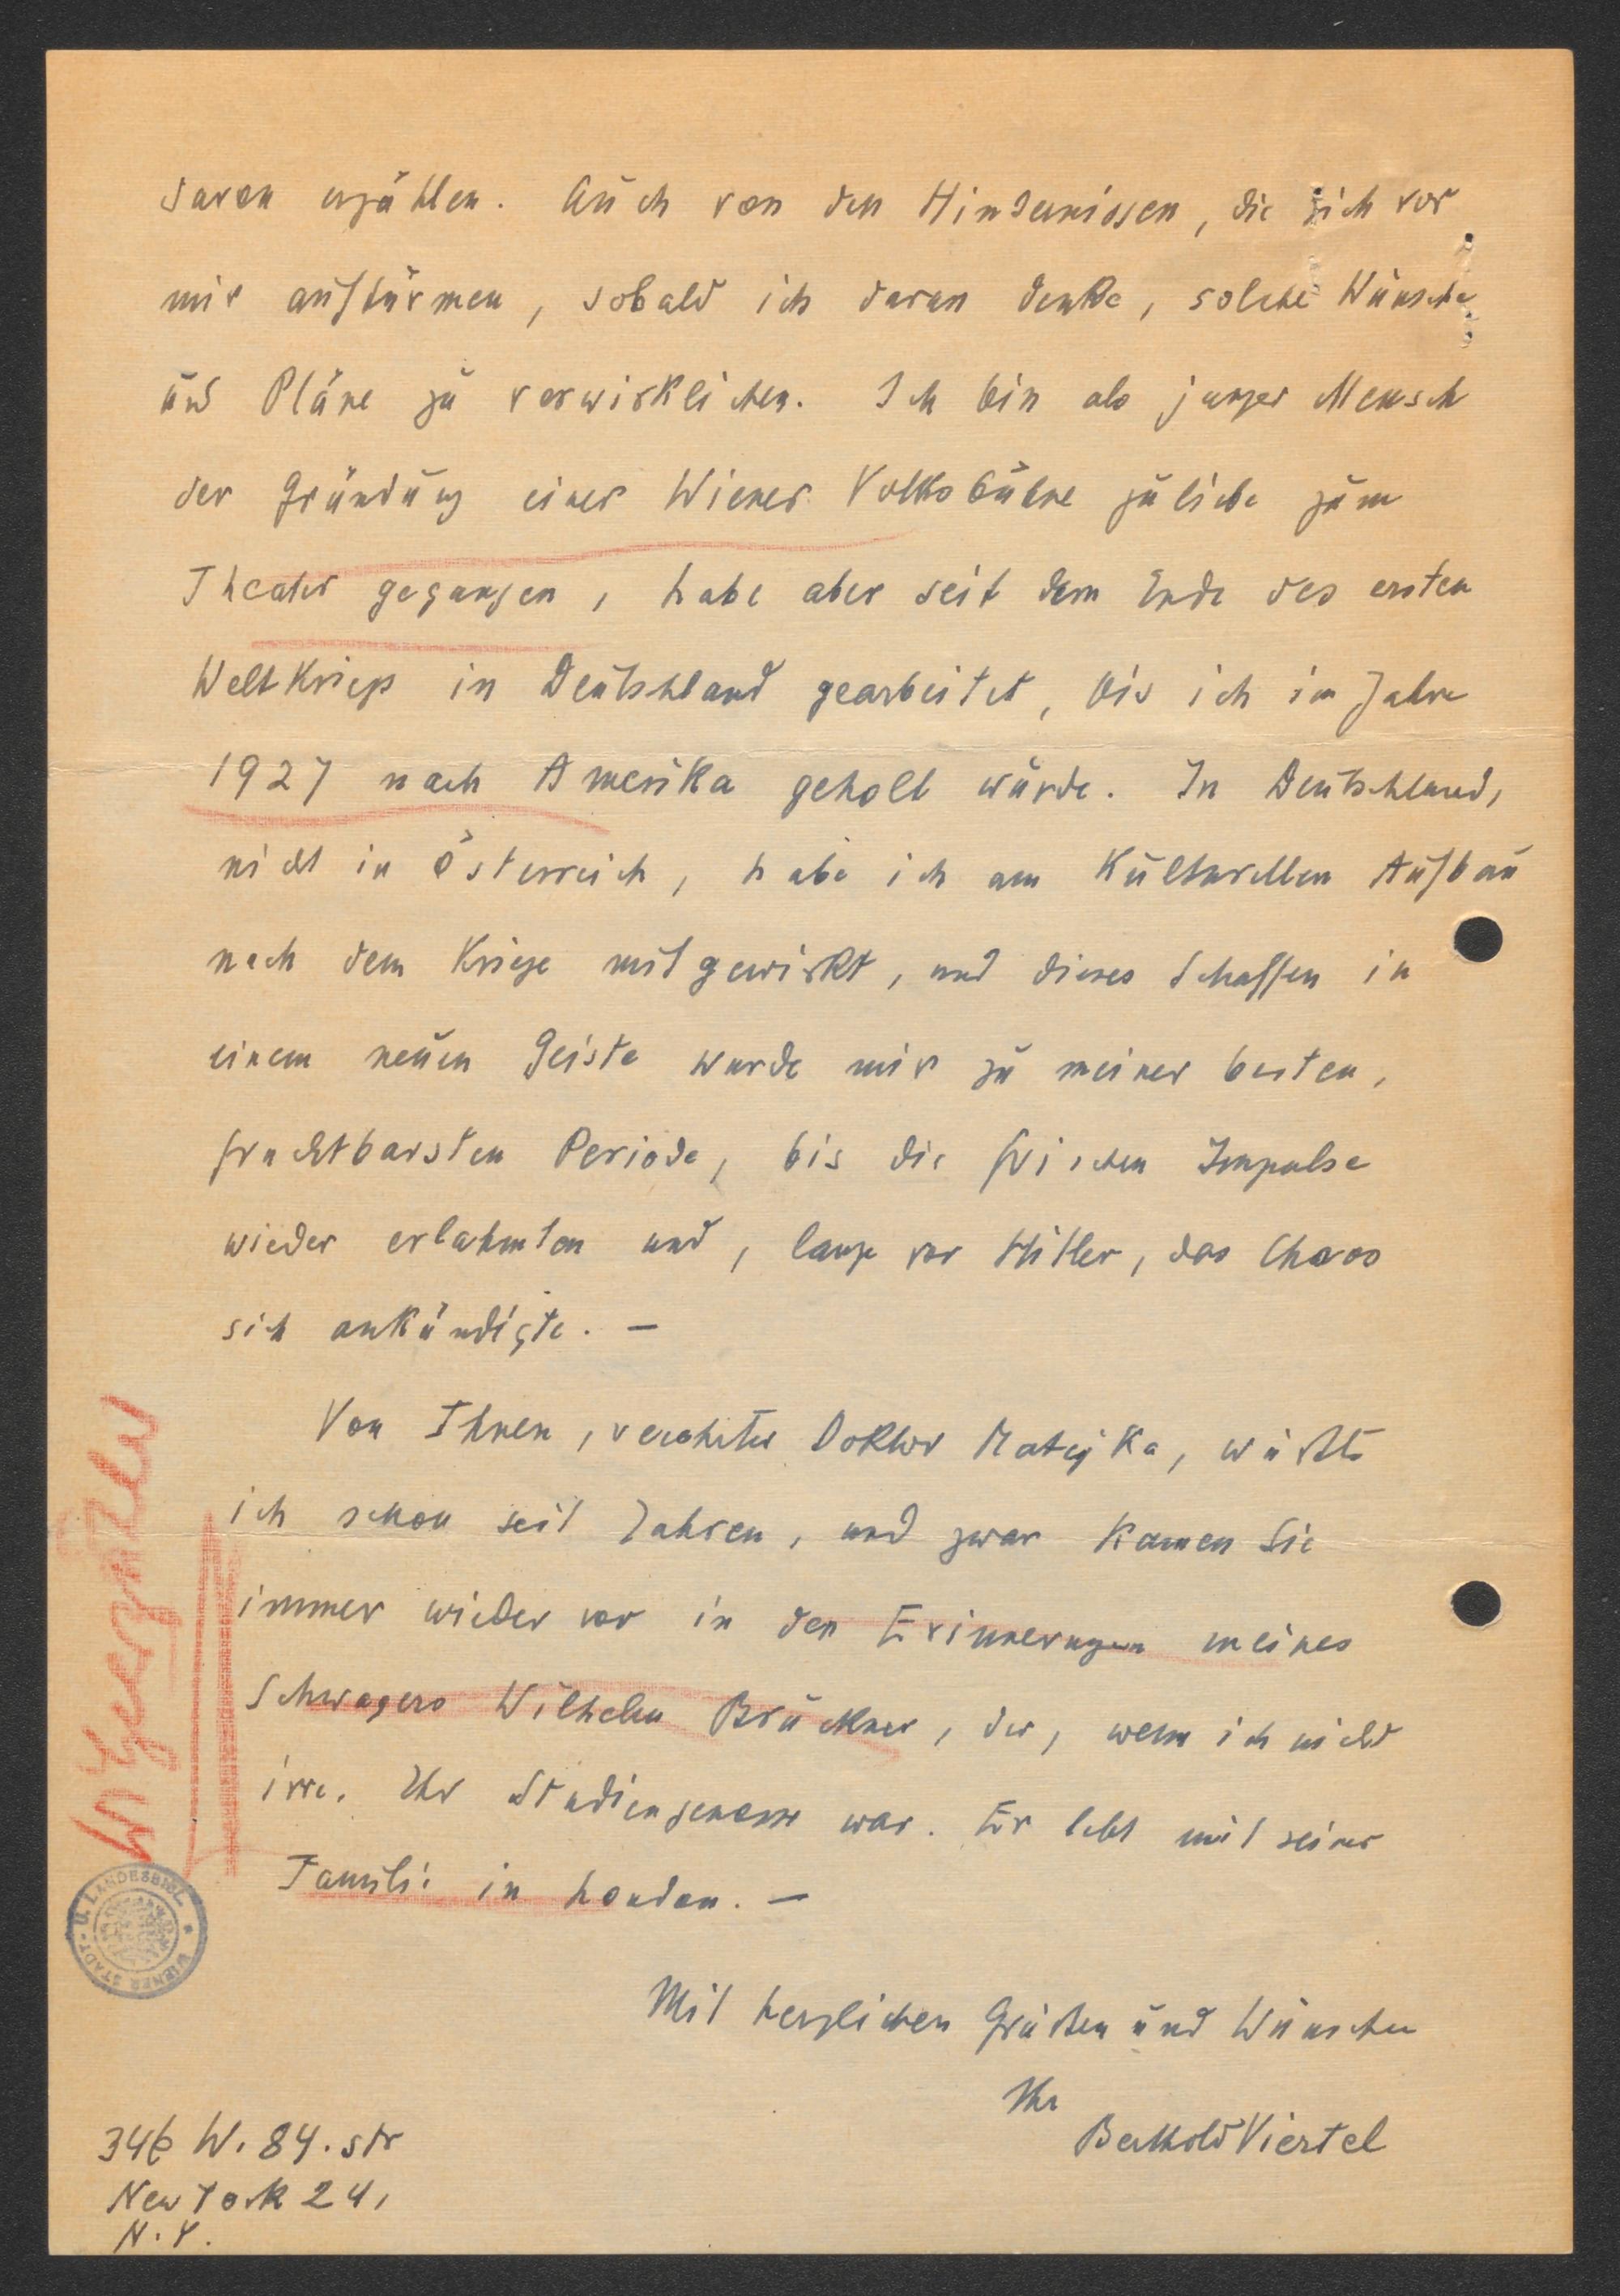 davon erzählen. Auch von den Hindernissen, die sich vor
mir auftürmen, sobald ich daran denke, solche Wünsche
und Pläne zu verwirklichen. Ich bin als junger Mensch
der Gründung einer Wiener Volksbühne zuliebe zum
Theater gegangen, habe aber seit dem Ende des ersten
Weltkriegs in Deutschland gearbeitet, bis ich im Jahre
1927 nach Amerika geholt wurde. In Deutschland,
nicht in Österreich, habe ich am kulturellen Aufbau
nach dem Kriege mitgewirkt, und dieses Schaffen in
einem neuen Geiste wurde mir zu meiner besten,
fruchtbarsten Periode, bis die frischen Impulse
wieder erlahmten und, lange vor Hitler, das Chaos
sich ankündigte. —
Von Ihnen, verehrter Doktor Matejka, wußte
ich schon seit Jahren, und zwar kamen Sie
immer wieder vor in den Erinnerungen meines
Schwagers Wilhelm Brückner, der, wenn ich nicht
irre, Ihr Studiengenosse war. Er lebt mit seiner
Familie in London. —
Mit herzlichen Grüßen und Wünschen
Ihr
Berthold Viertel
346 W. 84. str
New York 24,
N.Y.
WIENER STADT- U. LANDESBIBL.